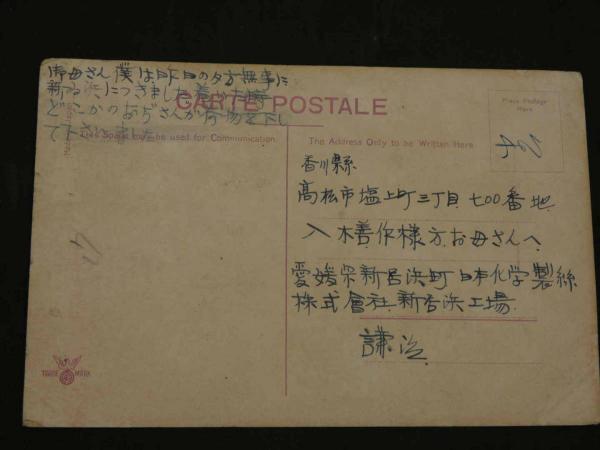 御母さん僕は昨日の夕方無事に
新居浜につきました着いた時
どこかのおぢさんが荷物を下し
て下さいました
CARTE POSTALE
Space may be used for Communication.
The Address Only to be Written Here
Place Postage
Here
香川縣
高松市塩上町三丁目七00番地
入木善作様方お母さんへ
愛媛県新居浜町日本化学製絲
株式會社新居浜工場
謙治
TRADE MARK